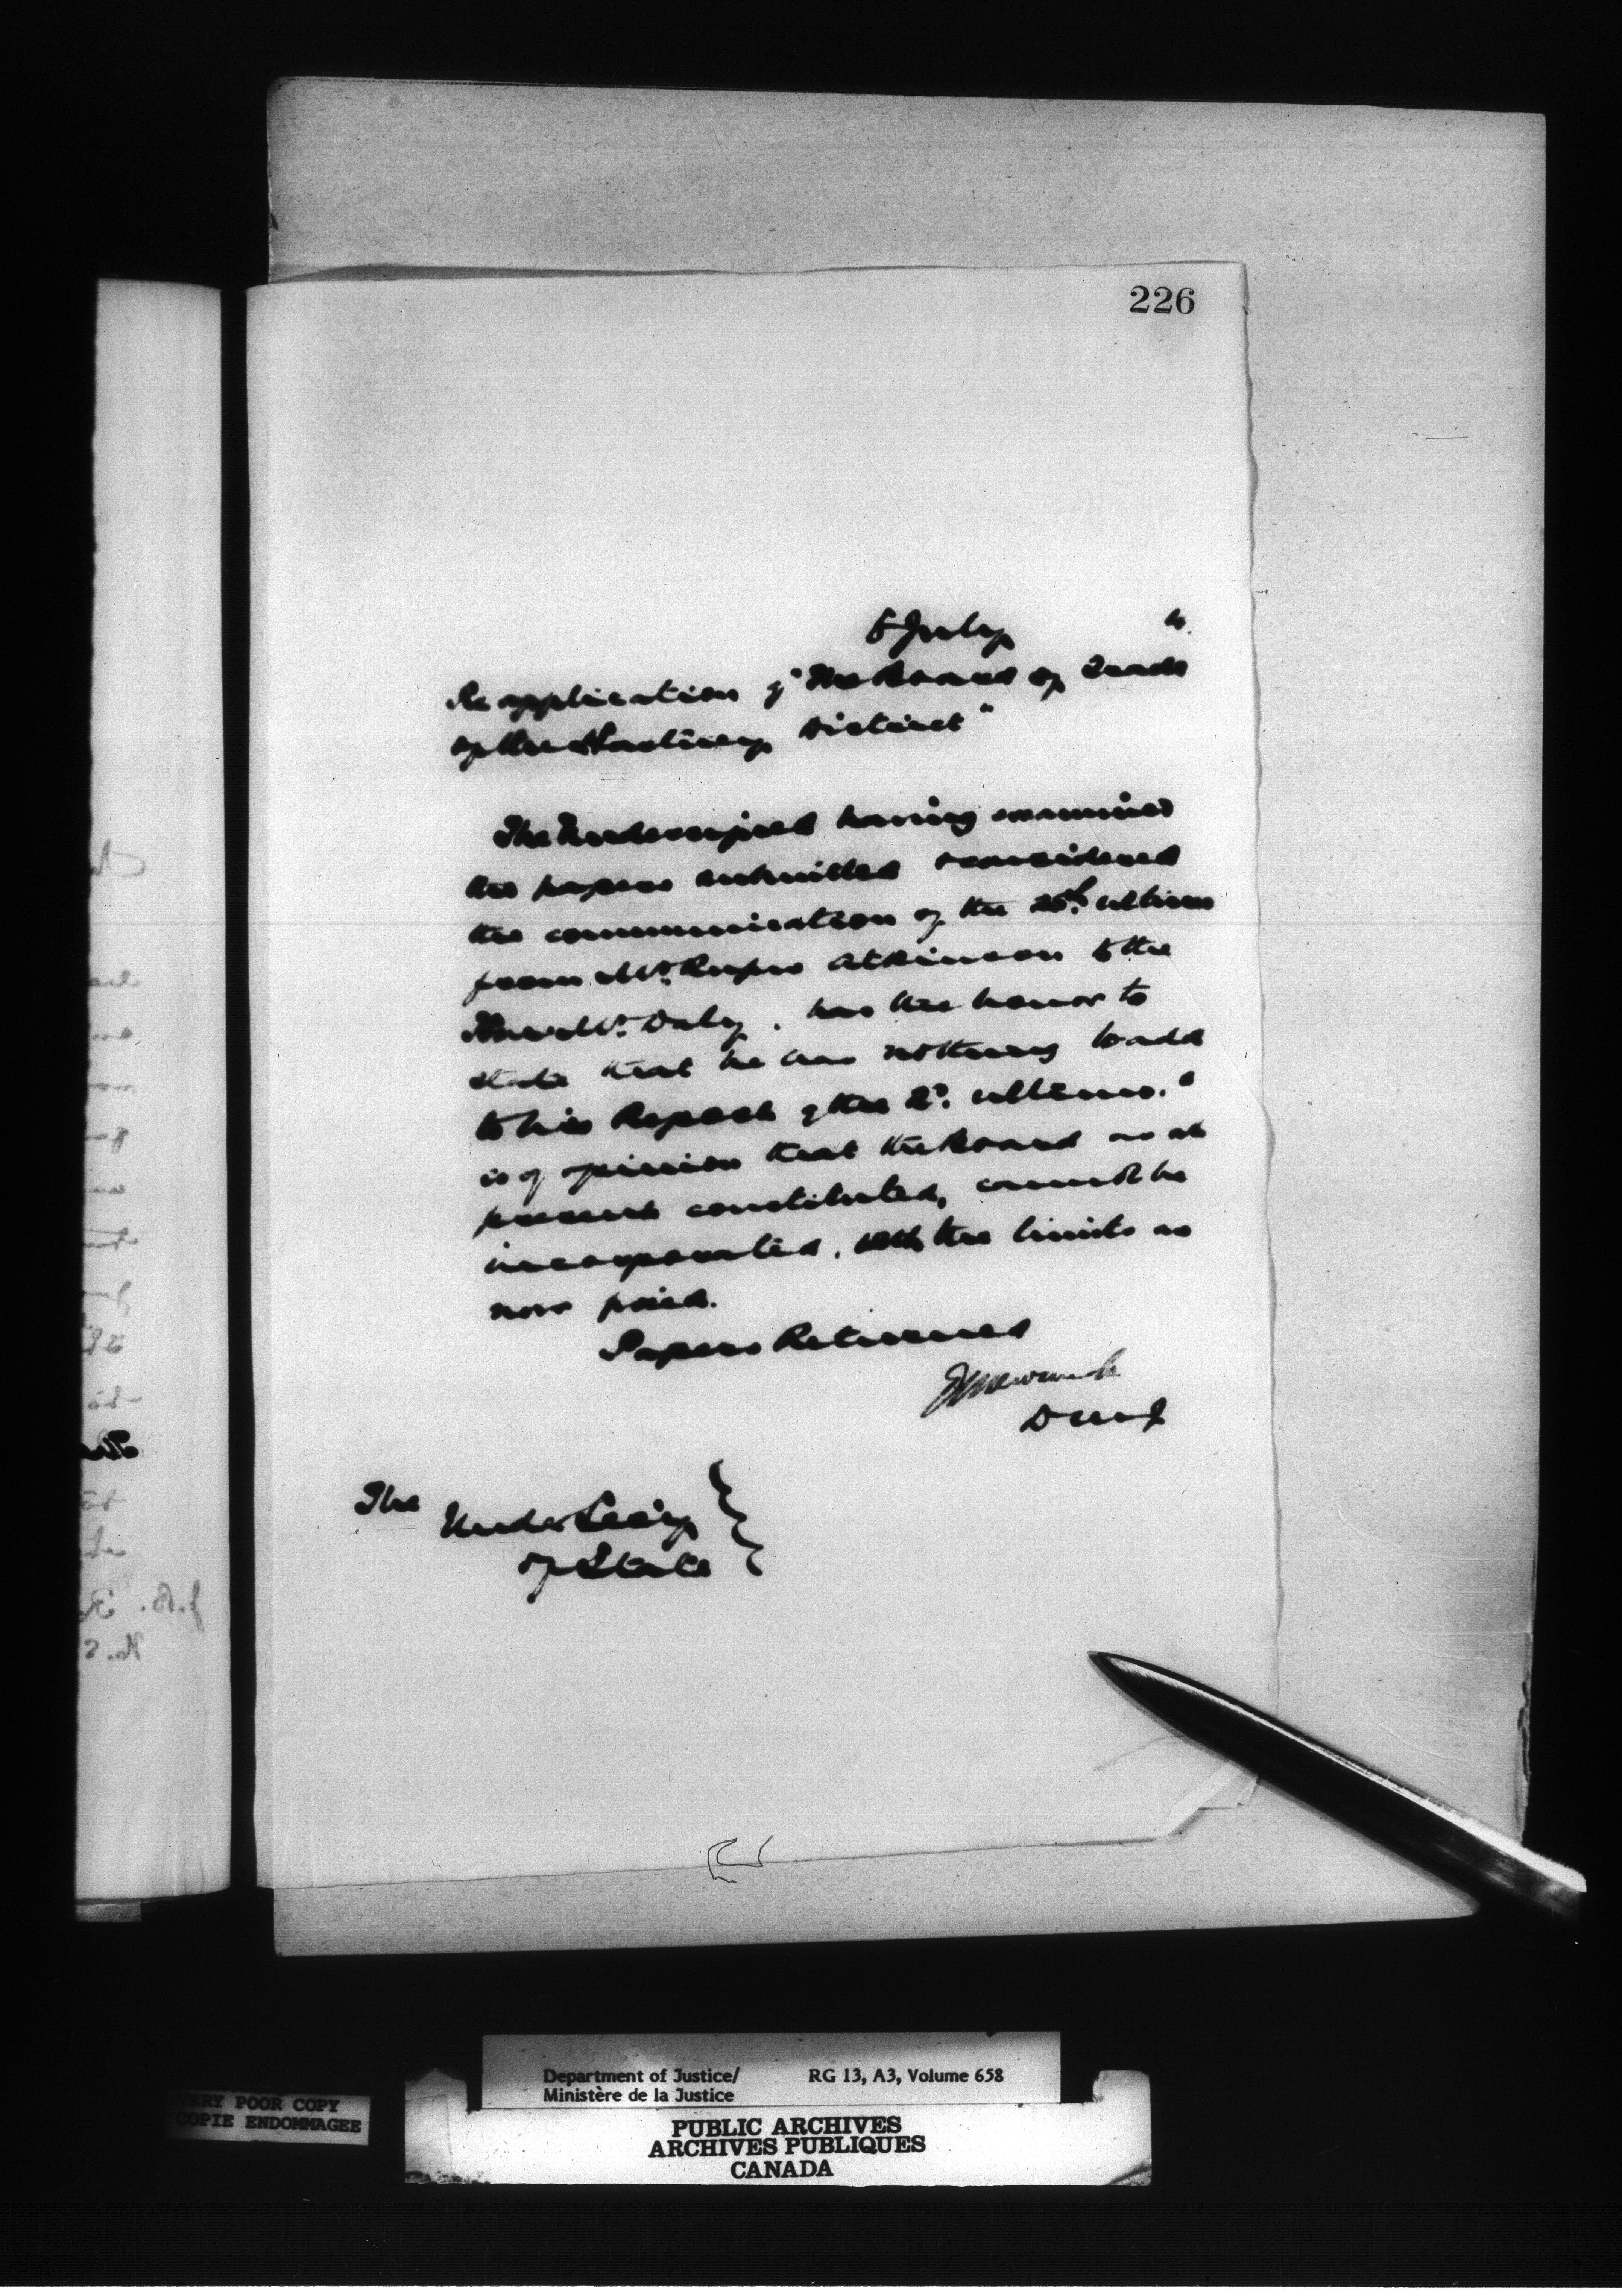 226
5 July 4.
Re application of "The Board of Trade
of the Hartney District"
The Undersigned having examined
the papers submitted & considered
the communication of the 25th ultimo
from Mr. Rufus Atkinson to the
Mr. Daly, has the honor to
state that he has nothing to add
to his Report of the 2d. ultimo. &
is of opinion that the Board as at
present constituted, cannot be
incorporated, with the limits as
now fixed.
Papers Returned
DMJ
The
Under Sec'y
of State
J.B.
No. 5
VERY POOR COPY
COPIE ENDOMMAGEE
Department of Justice/ RG 13, A3, Volume 658
Ministère de la Justice
PUBLIC ARCHIVES
ARCHIVES PUBLIQUES
CANADA